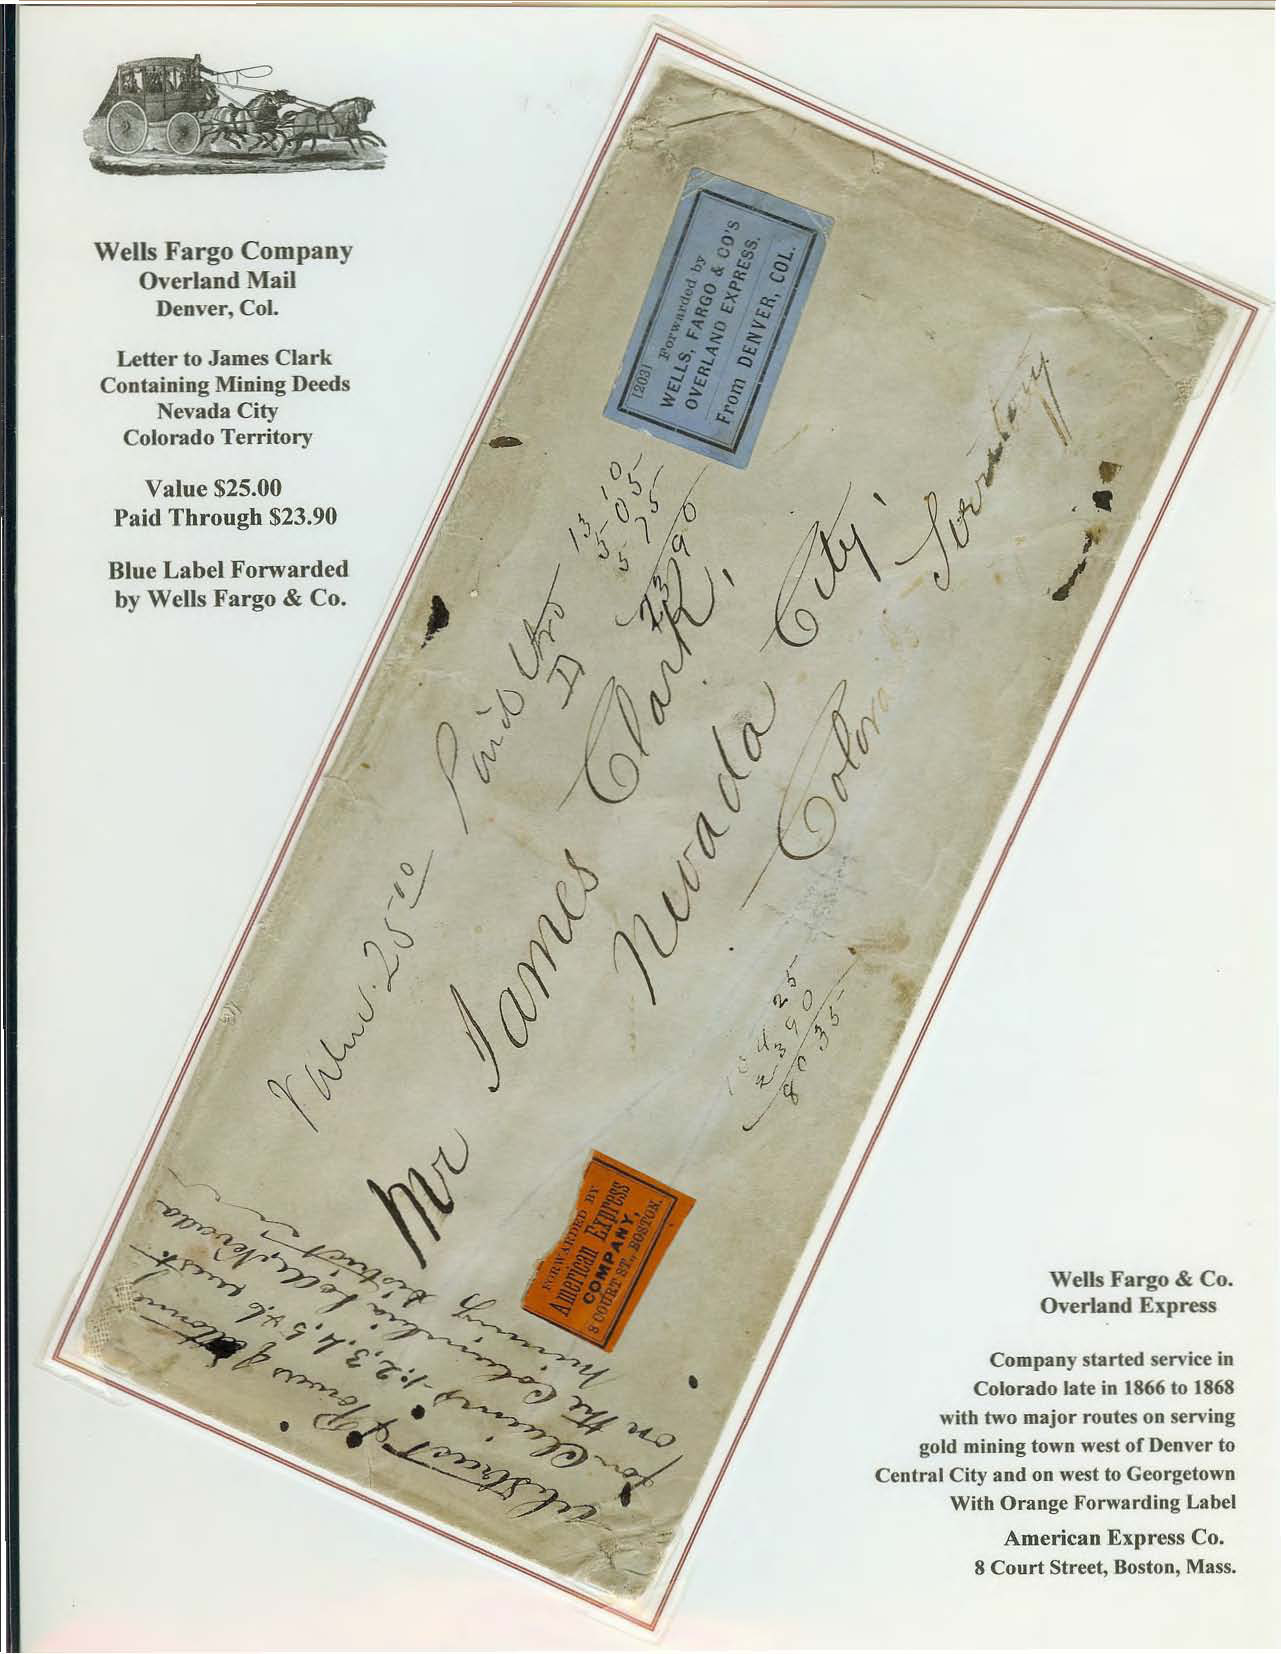 Wells Fargo Company
Overland Mail
Denver, Col.
Letter to James Clark
Containing Mining Deeds
Nevada City
Colorado Territory
Value $25.00
Paid Through $23.90
Blue Label Forwarded
by Wells Fargo & Co.
[203] Forwarded by
WELLS, FARGO & CO'S
OVERLAND EXPRESS.
From DENVER, COL.
Value 25.00
Paid thro
13 10
5 05
5 75
23 90
Mr James Clark,
Nevada City,
Colorado Territory
104 25
23 90
80 35
FORWARDED BY
American Express
COMPANY,
8 COURT ST., BOSTON.
Abstract & Powers of attorney
for Claims 1.2.3.4.5 & 6 west
on the Columbia Lode, Nevada
Mining District
Wells Fargo & Co.
Overland Express
Company started service in
Colorado late in 1866 to 1868
with two major routes on serving
gold mining town west of Denver to
Central City and on west to Georgetown
With Orange Forwarding Label
American Express Co.
8 Court Street, Boston, Mass.